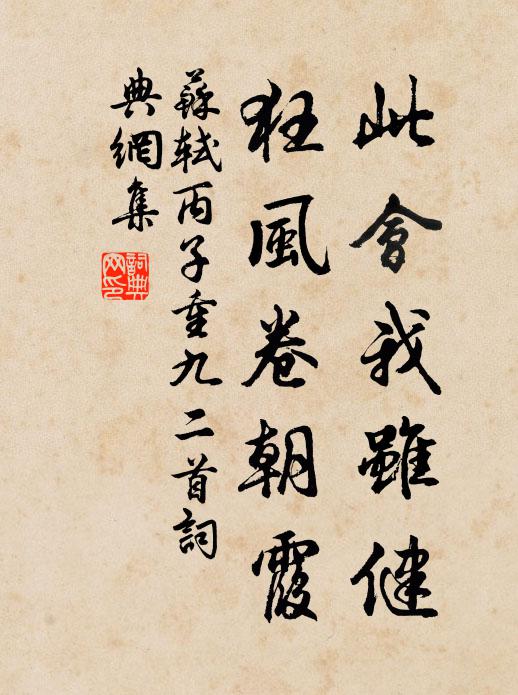 此會我雖健
狂風卷朝霞
蘇軾丙子重九二首詞
典網集
詞典網印